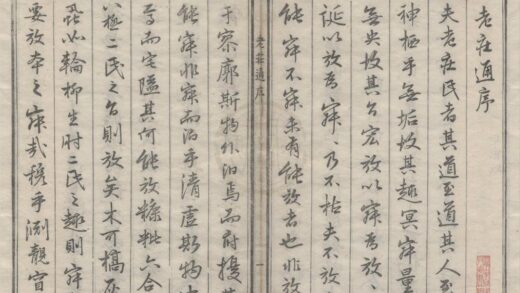 老莊通序
夫老莊氏者其道至道其人至
神栖乎無垢故其趣冥寂量
無央故其旨宏放以寂為放、
誕以放為寂、乃不枯夫不放
能寂不寂未有能放者也非放
老莊通序 一
于寥廓斯物外汨焉而
能寂非寂而泊乎清虛斯物
焉而定隘其何能放糠粃六合
八極二氏之旨則放矣木可槁灰
輪柳生肘二氏之趣則寂
要放本之寂哉穆乎渊靚